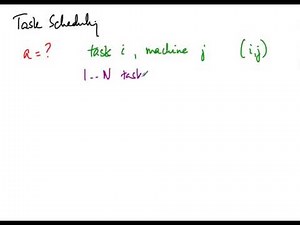 Task Scheduling
a = ? task i, machine j (i,j)
1..N task